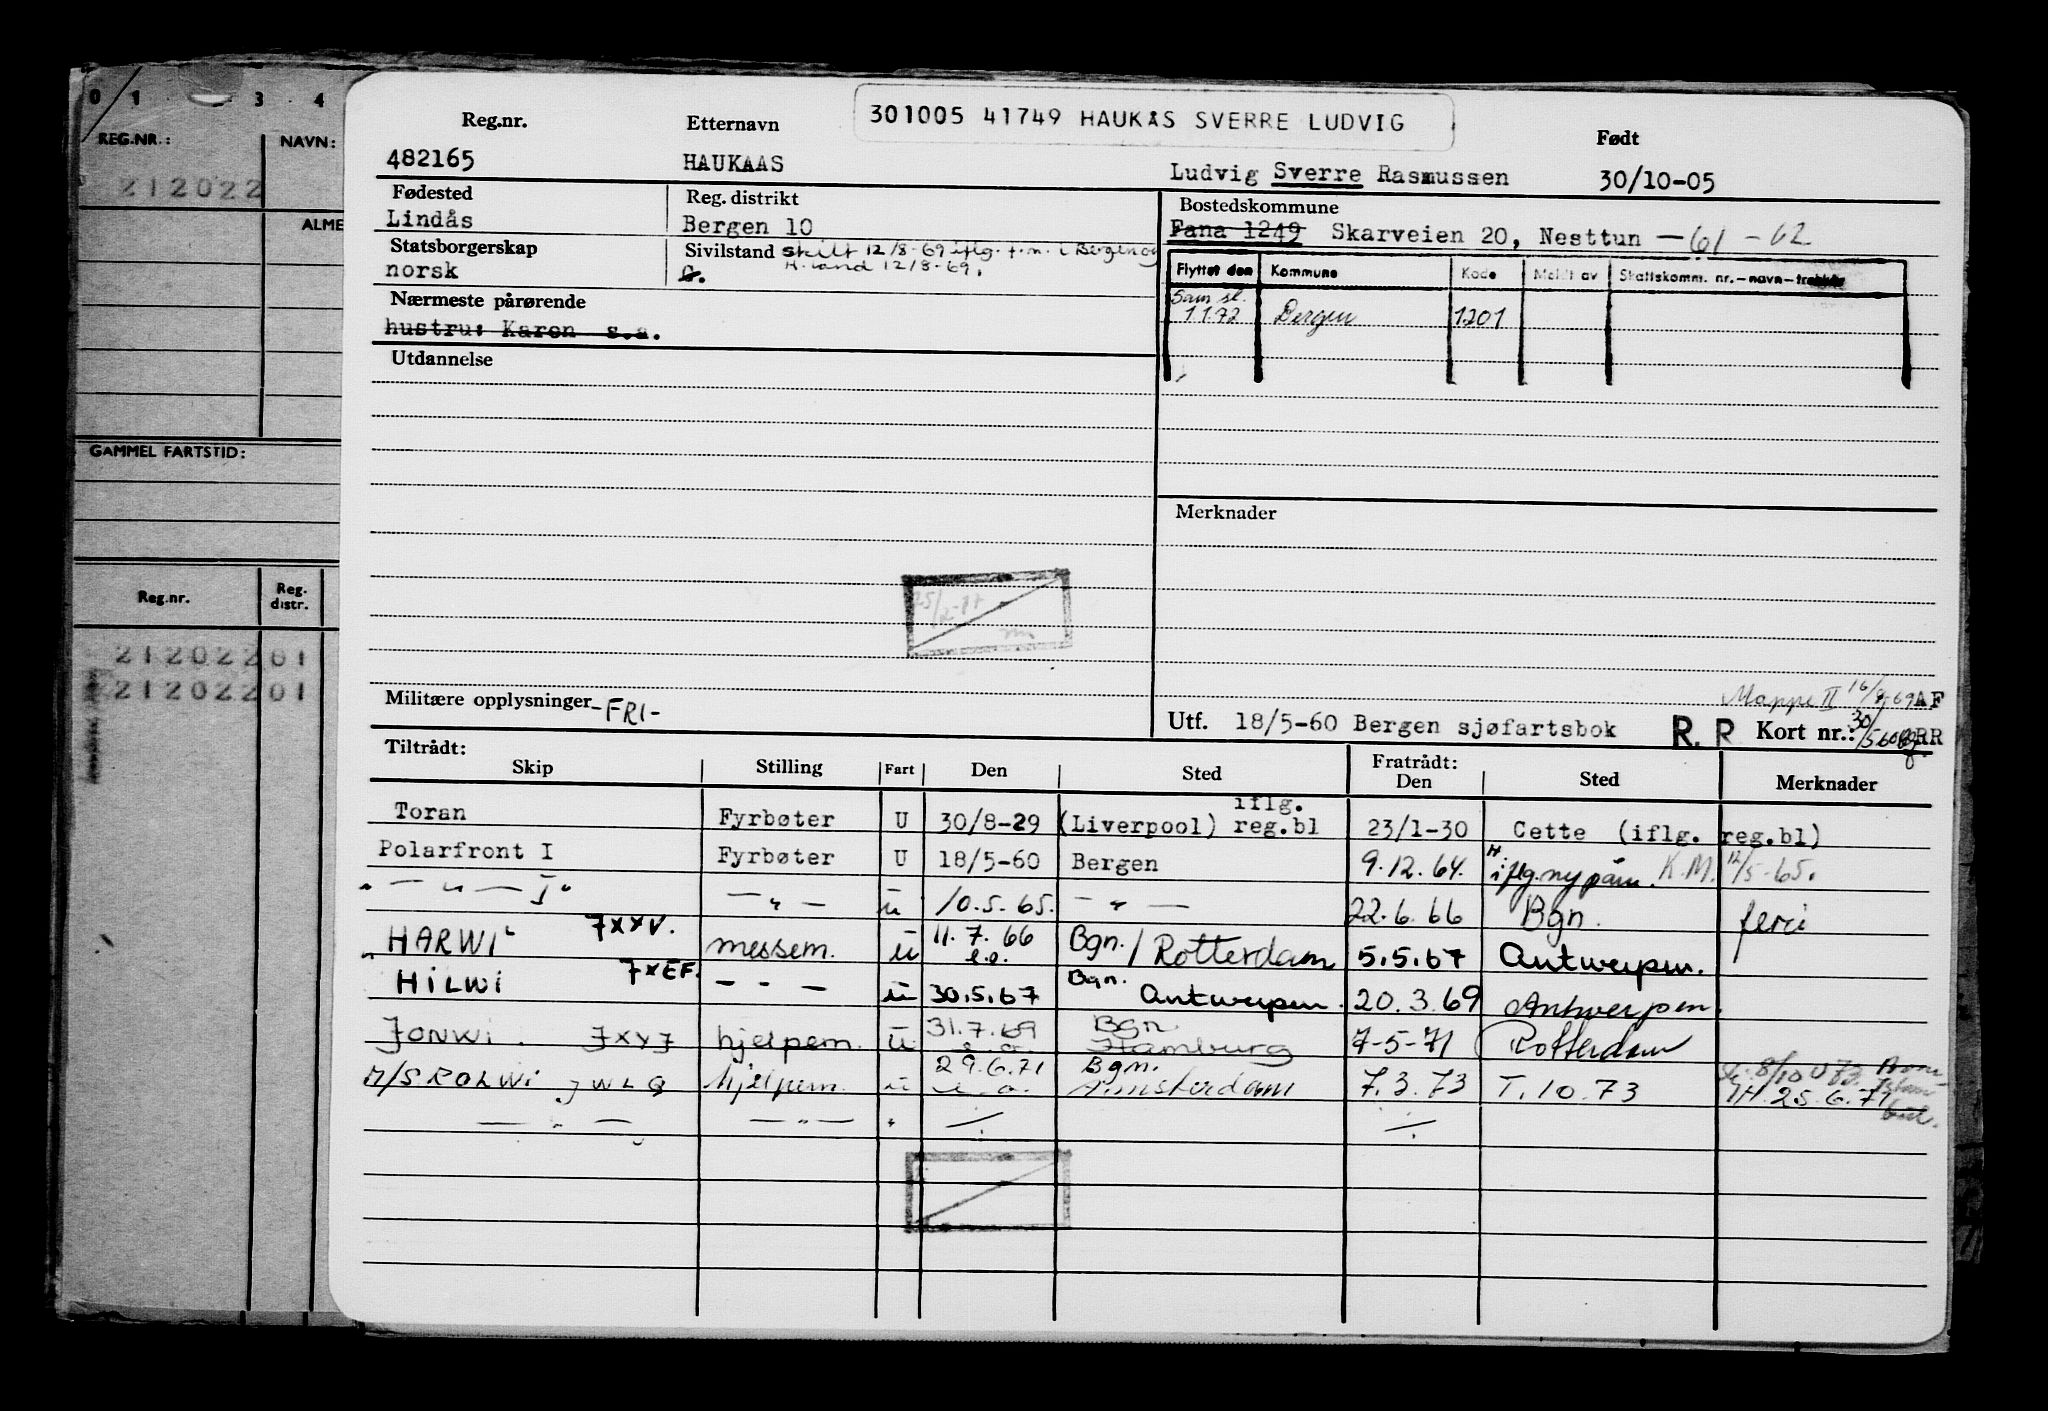 0 1 3 4
REG.NR.: NAVN:
212022
ALME
GAMMEL FARTSTID:
Reg.nr. Reg. distr.
212022 01
212022 01
301005 41749 HAUKÅS SVERRE LUDVIG
Reg.nr. Etternavn Født
482165 HAUKAAS Ludvig Sverre Rasmussen 30/10-05
Fødested Reg. distrikt Bostedskommune
Lindås Bergen 10 Fana 1249 Skarveien 20, Nesttun -61 -62
Statsborgerskap Sivilstand skilt 12/8-69 iflg. f.m. i Bergen og
norsk G. H.land 12/8-69.
Flyttet den Kommune Kode Meldt av Skattskomm. nr.-navn-
Sam sl.
1172 Bergen 1201
Nærmeste pårørende
hustru: Karen s.a.
Utdannelse
Merknader
25/2-77
Mappe II 16/9-69 AF
Militære opplysninger -FRI-
Utf. 18/5-60 Bergen sjøfartsbok R. R Kort nr.: 30/5 60 RR
Tiltrådt: Fratrådt:
Skip Stilling Fart Den Sted Den Sted Merknader
Toran Fyrbøter U 30/8-29 (Liverpool) iflg. reg.bl 23/1-30 Cette (iflg. reg.bl)
Polarfront I Fyrbøter U 18/5-60 Bergen 9.12.64. iflg. ny påm. K.M. 12/5-65.
" — " — I" — " — u 10.5.65. — " — 22.6.66 Bgn. ferie
HARWI 7XXV. messem. u 11.7.66 e.o. Bgn./Rotterdam 5.5.67 Antwerpen.
HILWI 7XEF. — " — u 30.5.67 Bgn. Antwerpen. 20.3.69 Antwerpen.
JONWI. JXYJ hjelpem. u 31.7.69 e.o. Bgn. Hamburg 7-5-71 Rotterdam
M/S ROLWI JWLQ hjelpem. u 29.6.71 e.o. Bgn. Amsterdam 7.3.73 T.10.73 8/10 73.
JH. 25.6.71
— " — — " — " ÷ ÷